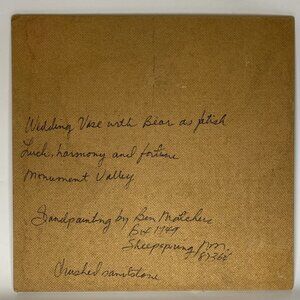 Wedding Vase with Bear as fetish
Luck, harmony and fortune
Monument Valley
Sandpainting by Ben
Box 1749
Sheepspring NM.
Crushed sandstone